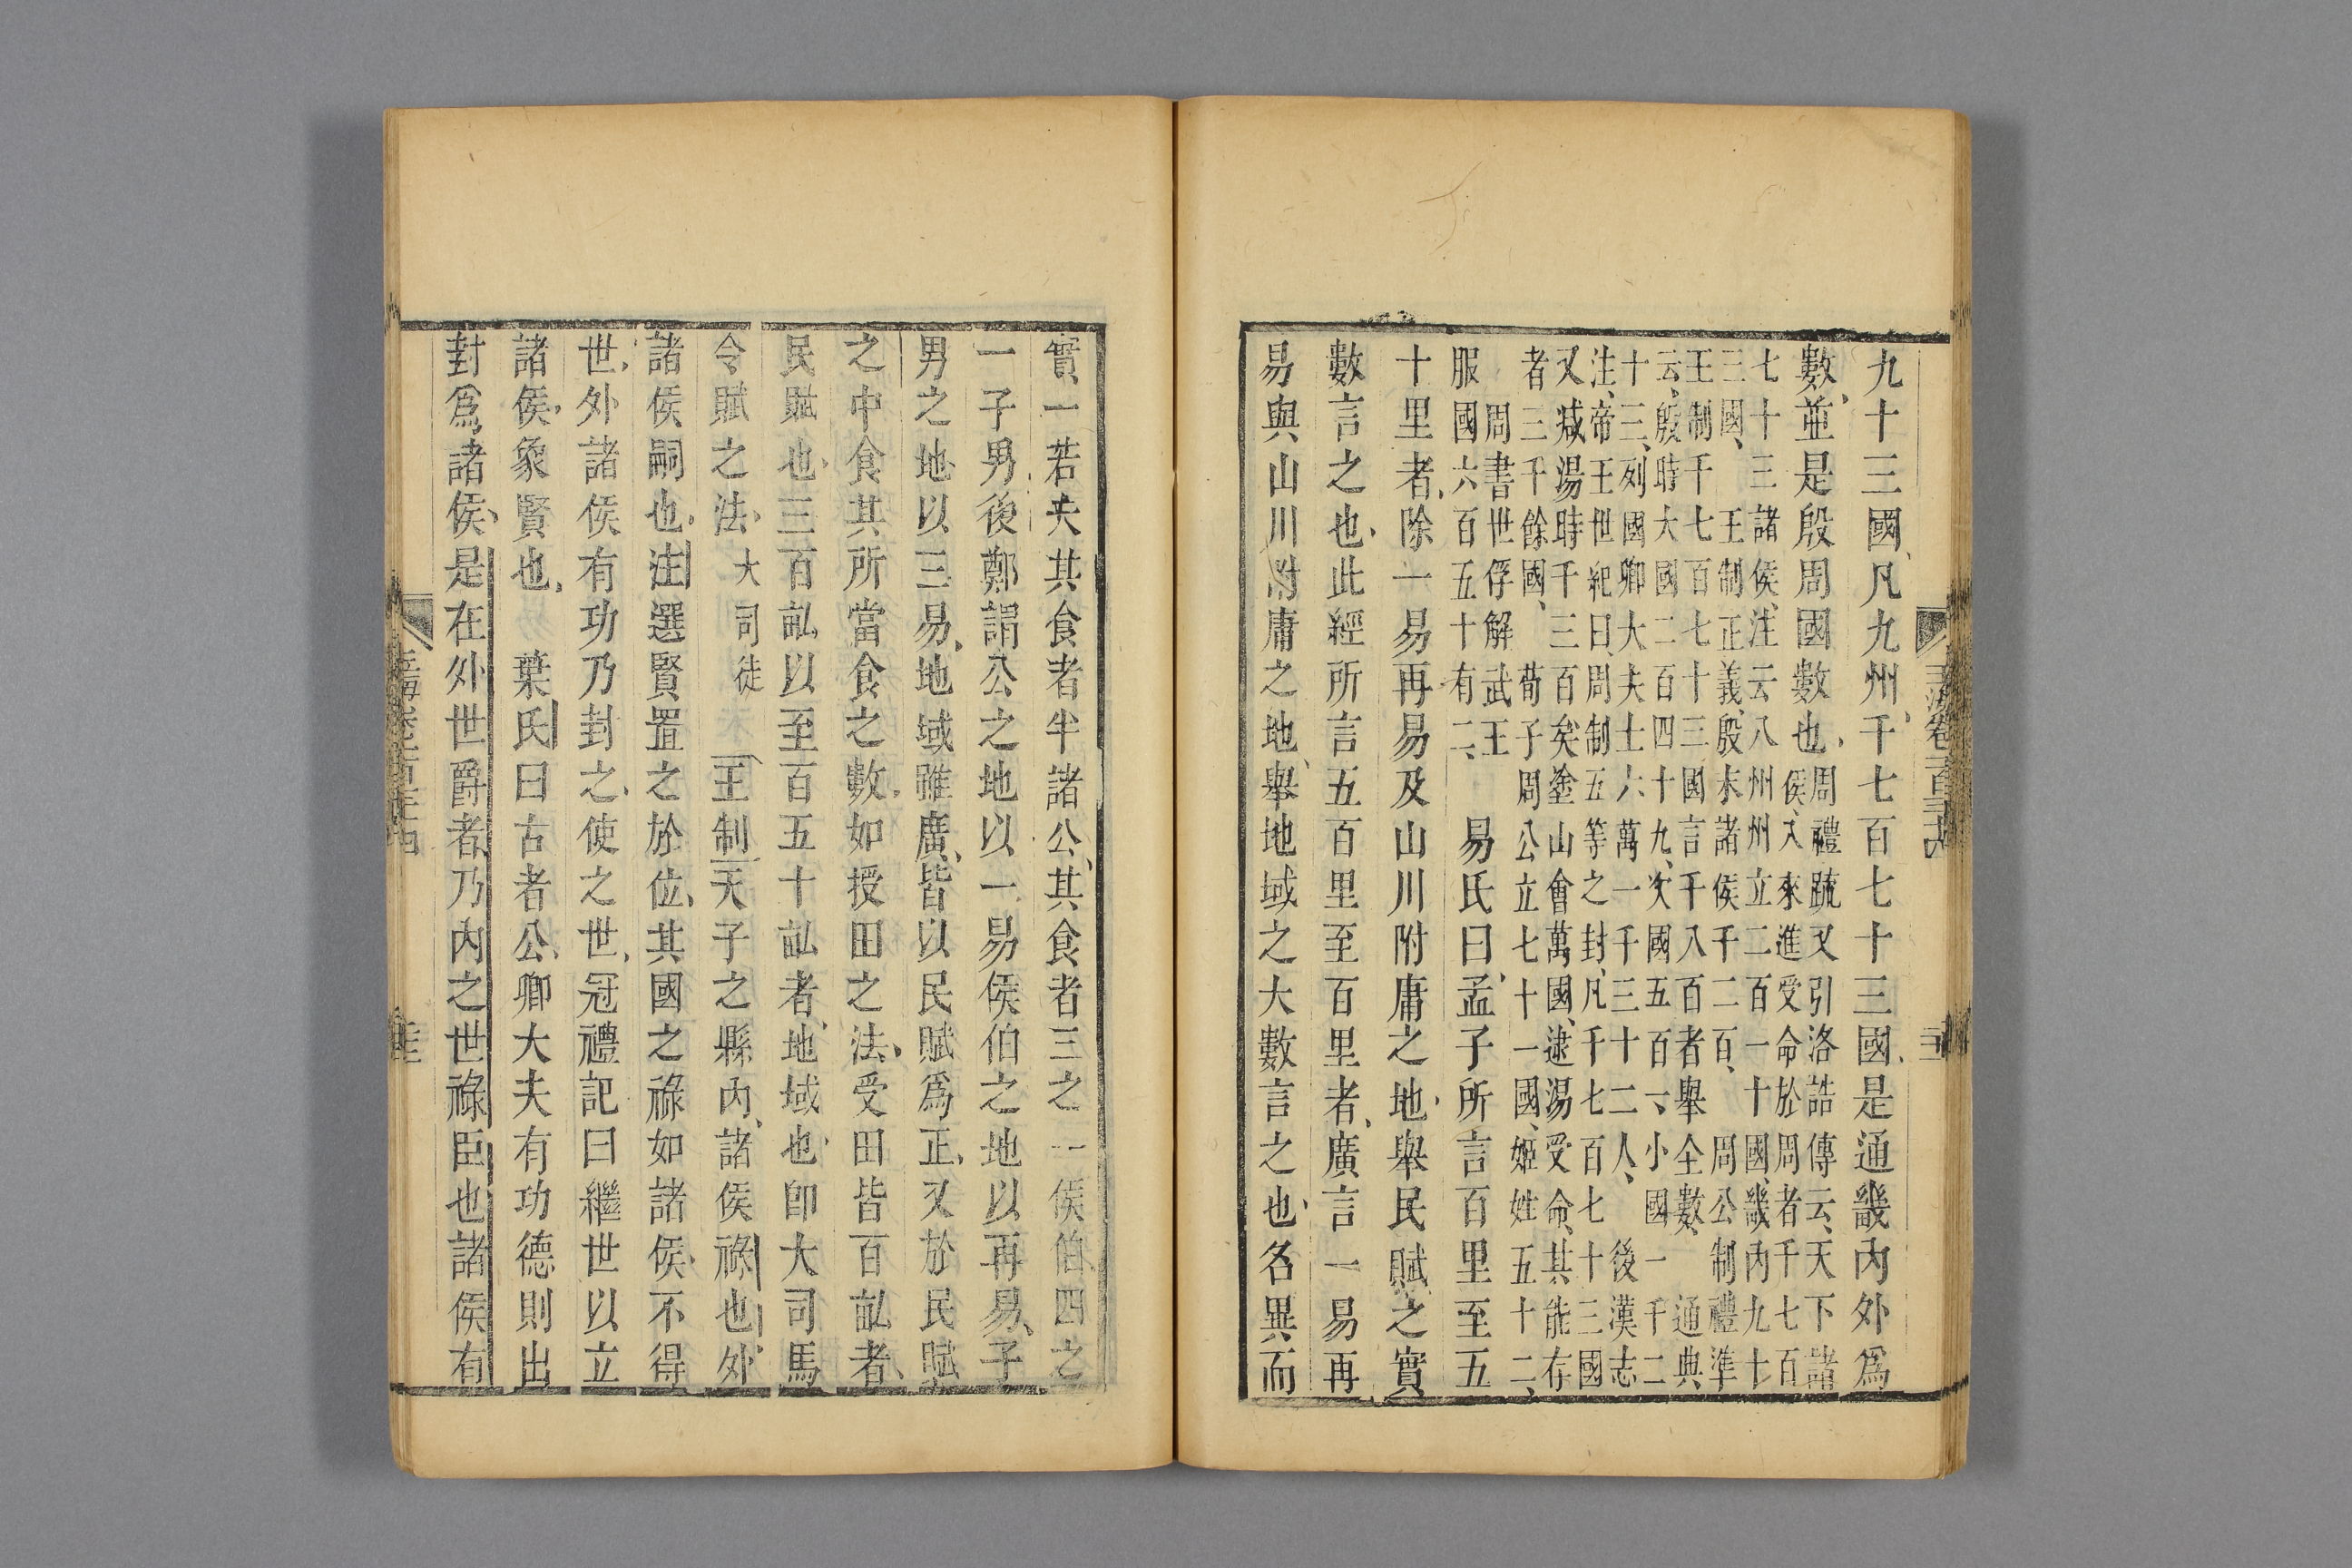 九十三國、凡九州、千七百七十三國、是通畿内外爲
數、並是殷周國數也、
周禮疏又引洛誥傳云、天下諸
侯、入來進受命於周者千七百
七十三諸侯、注云八州州立二百一十國、畿内九十
三國、 王制正義、殷末諸侯千二百、 周公制禮準
王制千七百七十三國言千八百者舉全數、 通典
云、殷時大國二百四十九、次國五百一、小國一千二
十三、列國卿大夫士六萬一千三十二人、 後漢志
注、帝王世紀曰、周制五等之封、凡千七百七十三國
又減湯時千三百矣塗山會萬國、逮湯受命、其能存
者三千餘國、 荀子周公立七十一國、姬姓五十二、
周書世俘解武王
服國六百五十有二、
易氏曰、孟子所言百里至五
十里者、除一易再易及山川附庸之地、舉民賦之實
數言之也、此經所言五百里至百里者、廣言一易再
易與山川附庸之地、舉地域之大數言之也、名異而
實一若夫其食者半諸公、其食者三之一侯伯四之
一子男、後鄭謂公之地以一易侯伯之地以再易、子
男之地以三易、地域雖廣、皆以民賦爲正、又於民賦
之中食其所當食之數、如授田之法、受田皆百畝者、
民賦也、三百畝以至百五十畝者、地域也、卽大司馬
令賦之法、 大司徒 王制天子之縣内、諸侯祿也、外
諸侯嗣也、注選賢置之於位、其國之祿如諸侯、不得
世、外諸侯有功乃封之、使之世、冠禮記曰繼世以立
諸侯、象賢也、 葉氏曰古者公、卿大夫有功德則出
封爲諸侯、是在外世爵者、乃内之世祿臣也諸侯有